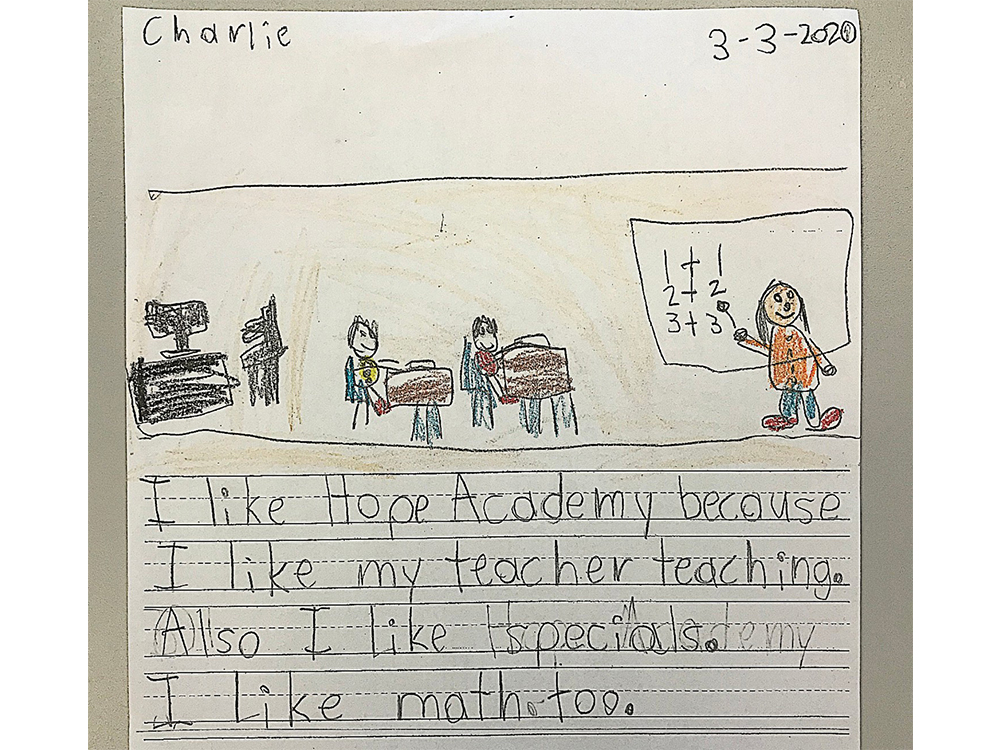 Charlie
3-3-2020
1 + 1
2 + 2
3 + 3
I like Hope Academy because
I like my teacher teaching.
Also I like specials.
I like math. too.